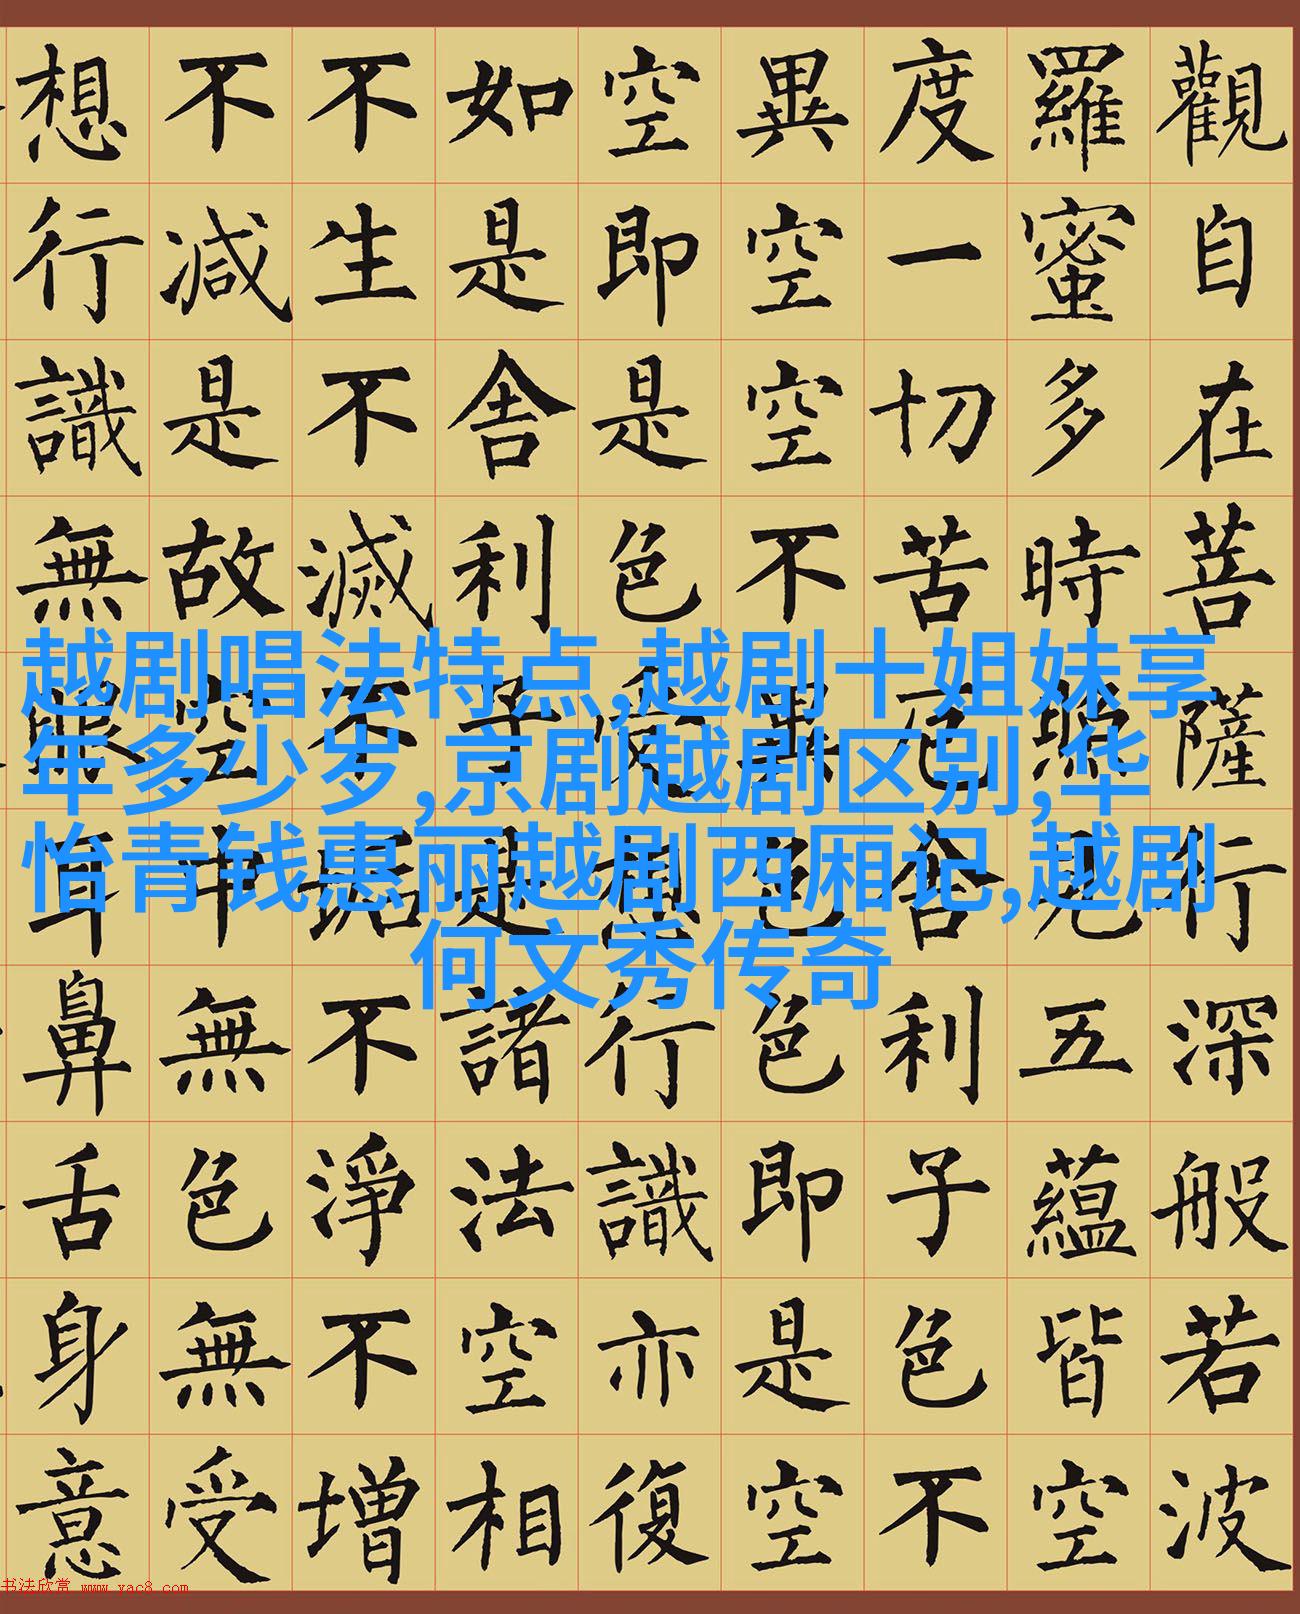 觀自在菩薩行深般若波
羅蜜多時照見五蘊皆空
度一切苦厄舍利子色不
異空空不異色色即是空
空即是色受想行識亦復
如是舍利子是諸法空相
不生不滅不垢不淨不增
不減是故空中無色無受
想行識無眼耳鼻舌身意
越剧唱法特点,越剧十姐妹享
年多少岁,京剧越剧区别,华
怡青钱惠丽越剧西厢记,越剧
何文秀传奇
书法欣赏 www.yac8.com